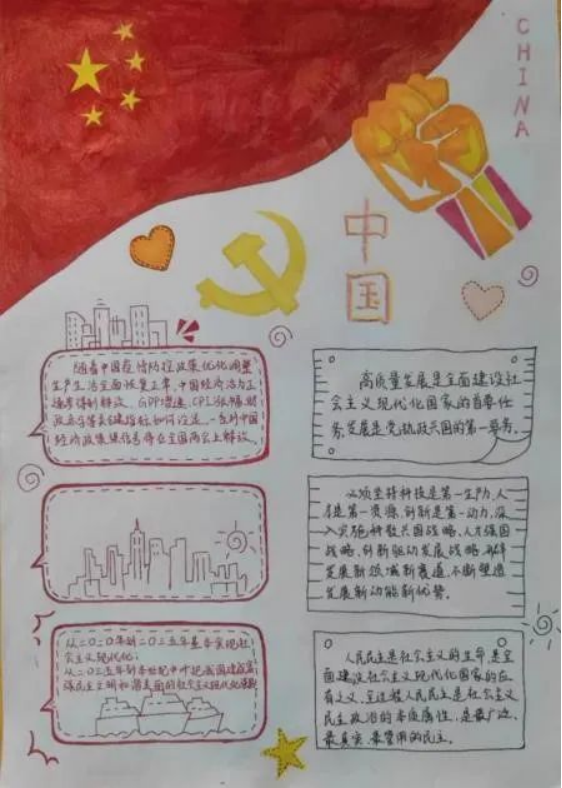 CHINA
中国
随着中国疫情防控政策优化调整
生产生活全面恢复正常,中国经济活力正
GDP增速、CPI涨幅、财
政赤字等关键指标如何设定,一系列中国
经济政策信号将在全国两会上释放。
高质量发展是全面建设社
会主义现代化国家的首要任
务,发展是党执政兴国的第一要务。
必须坚持科技是第一生产力、人
才是第一资源、创新是第一动力,深
入实施科教兴国战略、人才强国
战略、创新驱动发展战略,开辟
发展新领域新赛道,不断塑造
发展新动能新优势。
从二〇二〇年到二〇三五年基本实现社
会主义现代化;
从二〇三五年到本世纪中叶把我国建成富
强民主文明和谐美丽的社会主义现代化强国
人民民主是社会主义的生命,是全
面建设社会主义现代化国家的应
有之义。全过程人民民主是社会主义
民主政治的本质属性,是最广泛、
最真实、最管用的民主。